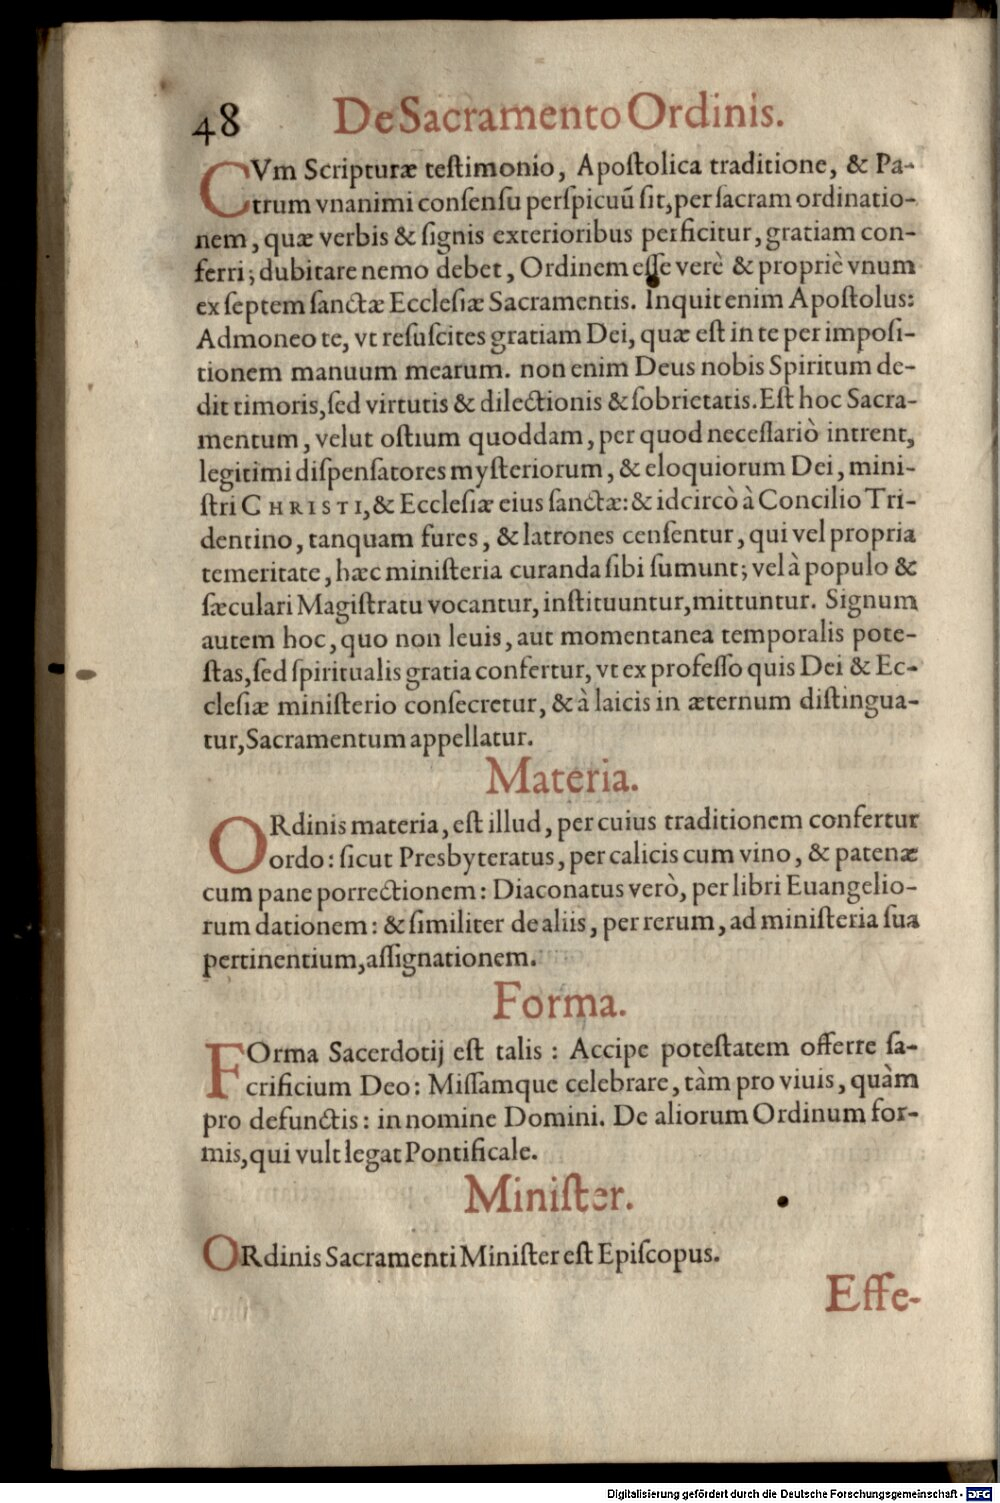 48 De Sacramento Ordinis.
CVm Scripturæ teſtimonio, Apoſtolica traditione, & Pa-
trum vnanimi conſenſu perſpicuũ ſit, per ſacram ordinatio-
nem, quæ verbis & ſignis exterioribus perficitur, gratiam con-
ferri; dubitare nemo debet, Ordinem eſſe verè & propriè vnum
ex ſeptem ſanctæ Eccleſiæ Sacramentis. Inquit enim Apoſtolus:
Admoneo te, vt reſuſcites gratiam Dei, quæ eſt in te per impoſi-
tionem manuum mearum. non enim Deus nobis Spiritum de-
dit timoris, ſed virtutis & dilectionis & ſobrietatis. Eſt hoc Sacra-
mentum, velut oſtium quoddam, per quod neceſſariò intrent,
legitimi diſpenſatores myſteriorum, & eloquiorum Dei, mini-
ſtri CHRISTI, & Eccleſiæ eius ſanctæ: & idcircò à Concilio Tri-
dentino, tanquam fures, & latrones cenſentur, qui vel propria
temeritate, hæc miniſteria curanda ſibi ſumunt; vel à populo &
ſæculari Magiſtratu vocantur, inſtituuntur, mittuntur. Signum
autem hoc, quo non leuis, aut momentanea temporalis pote-
ſtas, ſed ſpiritualis gratia confertur, vt ex profeſſo quis Dei & Ec-
cleſiæ miniſterio conſecretur, & à laicis in æternum diſtingua-
tur, Sacramentum appellatur.
Materia.
ORdinis materia, eſt illud, per cuius traditionem confertur
ordo: ſicut Presbyteratus, per calicis cum vino, & patenæ
cum pane porrectionem: Diaconatus verò, per libri Euangelio-
rum dationem: & ſimiliter de aliis, per rerum, ad miniſteria ſua
pertinentium, aſſignationem.
Forma.
FOrma Sacerdotij eſt talis: Accipe poteſtatem offerre ſa-
crificium Deo: Miſſamque celebrare, tàm pro viuis, quàm
pro defunctis: in nomine Domini. De aliorum Ordinum for-
mis, qui vult legat Pontificale.
Miniſter.
ORdinis Sacramenti Miniſter eſt Epiſcopus.
Effe-
Digitalisierung gefördert durch die Deutsche Forschungsgemeinschaft - DFG